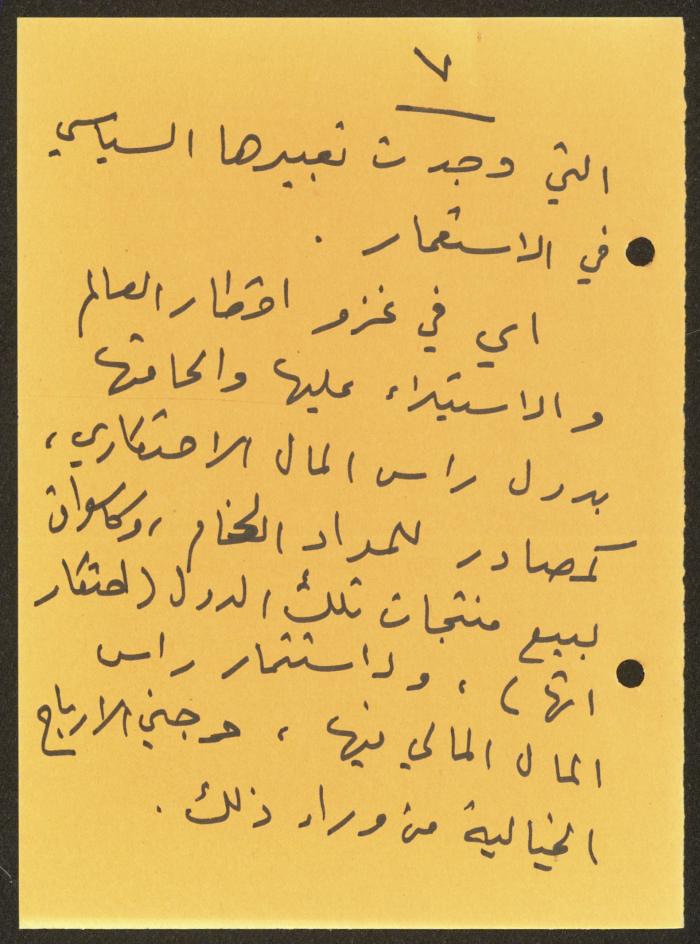 ٧
التي وجدت تعبيرها السياسي
في الاستعمار .
اي في غزو اقطار العالم
والاستيلاء عليها والحاقها
بدول راس المال الاحتكاري ،
كمصادر للمواد الخام ، وكاسواق
لبيع منتجات تلك الدول (احتكار
اتها) ، ولاستثمار راس
المال المالي فيها ، وجني الارباح
الخيالية من وراء ذلك .